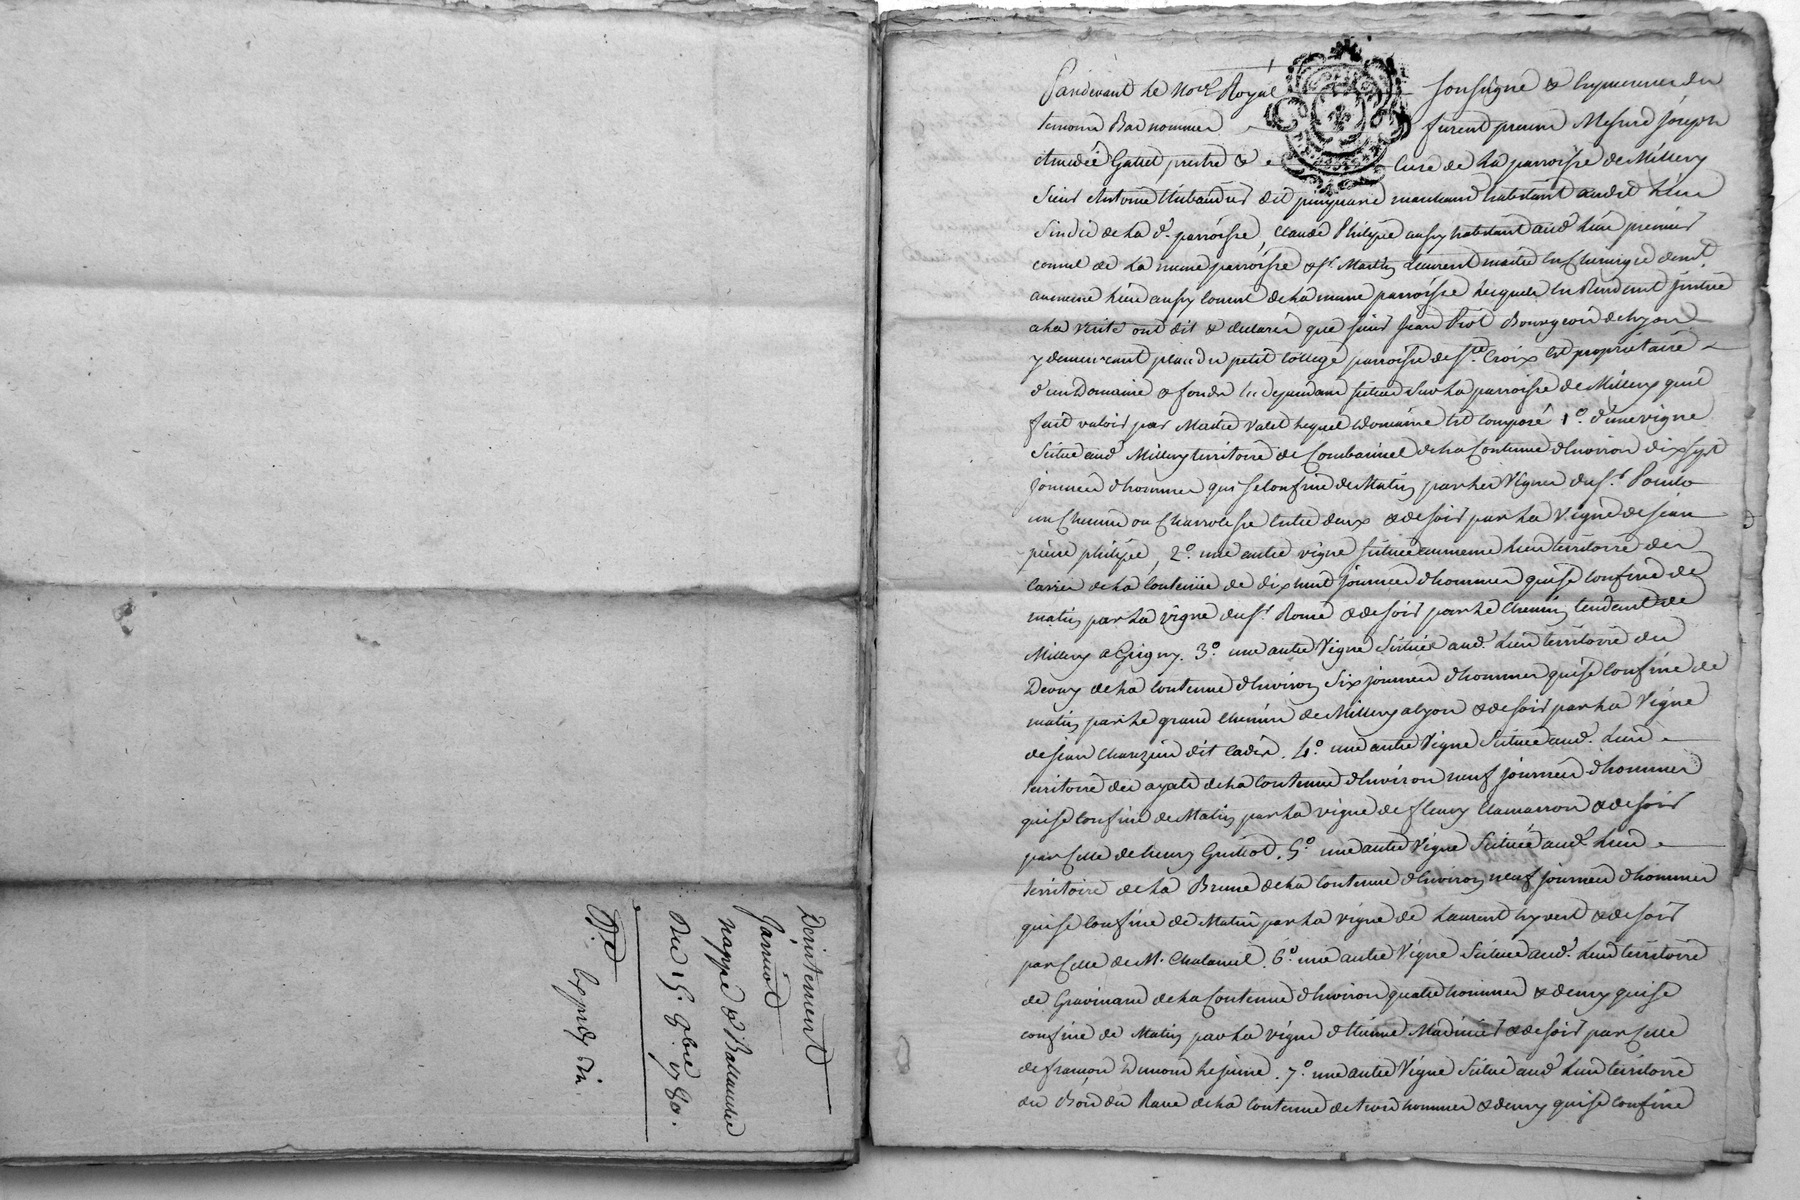 Desistement
Janviot
nappe & Ballandre
Du 5 9bre 1780.
Expedy du
Pardevant le No.re Royal soussigné & en presence des
temoins Bas nommes furent presens Messire Joseph
Amedée Gattet prestre & Curé de la parroisse de Millery
sieur Antoine Thibaudier dit marchand habitant audit lieu
sindic de la d. parroisse, Claude Philipe aussy habitant aud. lieu premier
consul de la meme parroisse & s.r Martin Laurent maitre en Chirurgie dem.t
au meme lieu aussy consul de la meme parroisse lesquels en Rendant justice
a la verité ont dit & declaré que sieur Jean Bourgeois de Lyon
y demeurant place du petit College parroisse de S.te Croix est proprietaire
d'un Domaine & fonds en dependans situés sur la parroisse de Millery qu'il
fait valoir par Maitre Valet lequel domaine est composé 1.o d'une vigne
située aud. Millery territoire de Combarinel de la Contenue d'Environ dix sept
journées d'hommes qui se Confine de Matin par les Vignes du s.r
un Chemin ou Charroliere entre deux & de soir par la Vigne de jean
pierre philipe, 2.o une autre vigne située au meme lieu territoire des
de la Contenue de dix huit journées d'hommes qui se confine de
matin par la vigne du s.r Rome & de soir par le Chemin tendant de
Millery a Grigny. 3.o une autre Vigne située aud. lieu territoire du
Devay de la Contenue d'Environ Six journées d'hommes qui se Confine de
matin par le grand Chemin de Millery a Lyon & de soir par la Vigne
de jean Charezieu dit Cadet. 4.o une autre Vigne située aud. lieu
territoire des ayats de la Contenue d'Environ neuf journées d'hommes
qui se Confine de Matin par la vigne de fleury Chamarron & de soir
par Celle de 5.o une autre Vigne Située aud. lieu
territoire de la Brune de la Contenue d'Environ neuf journées d'hommes
qui se Confine de Matin par la vigne de Laurent & de soir
par Celle de M. Chalamel. 6.o une autre Vigne située aud. lieu territoire
de Gravinand de la Contenue d'Environ quatre hommes & demy qui se
confine de Matin par la vigne d'Etienne Madinier & de soir par Celle
de françois Dumond le jeune. 7.o une autre Vigne située aud. lieu territoire
du Bois du Rave de la Contenue de trois hommes & demy qui se confine